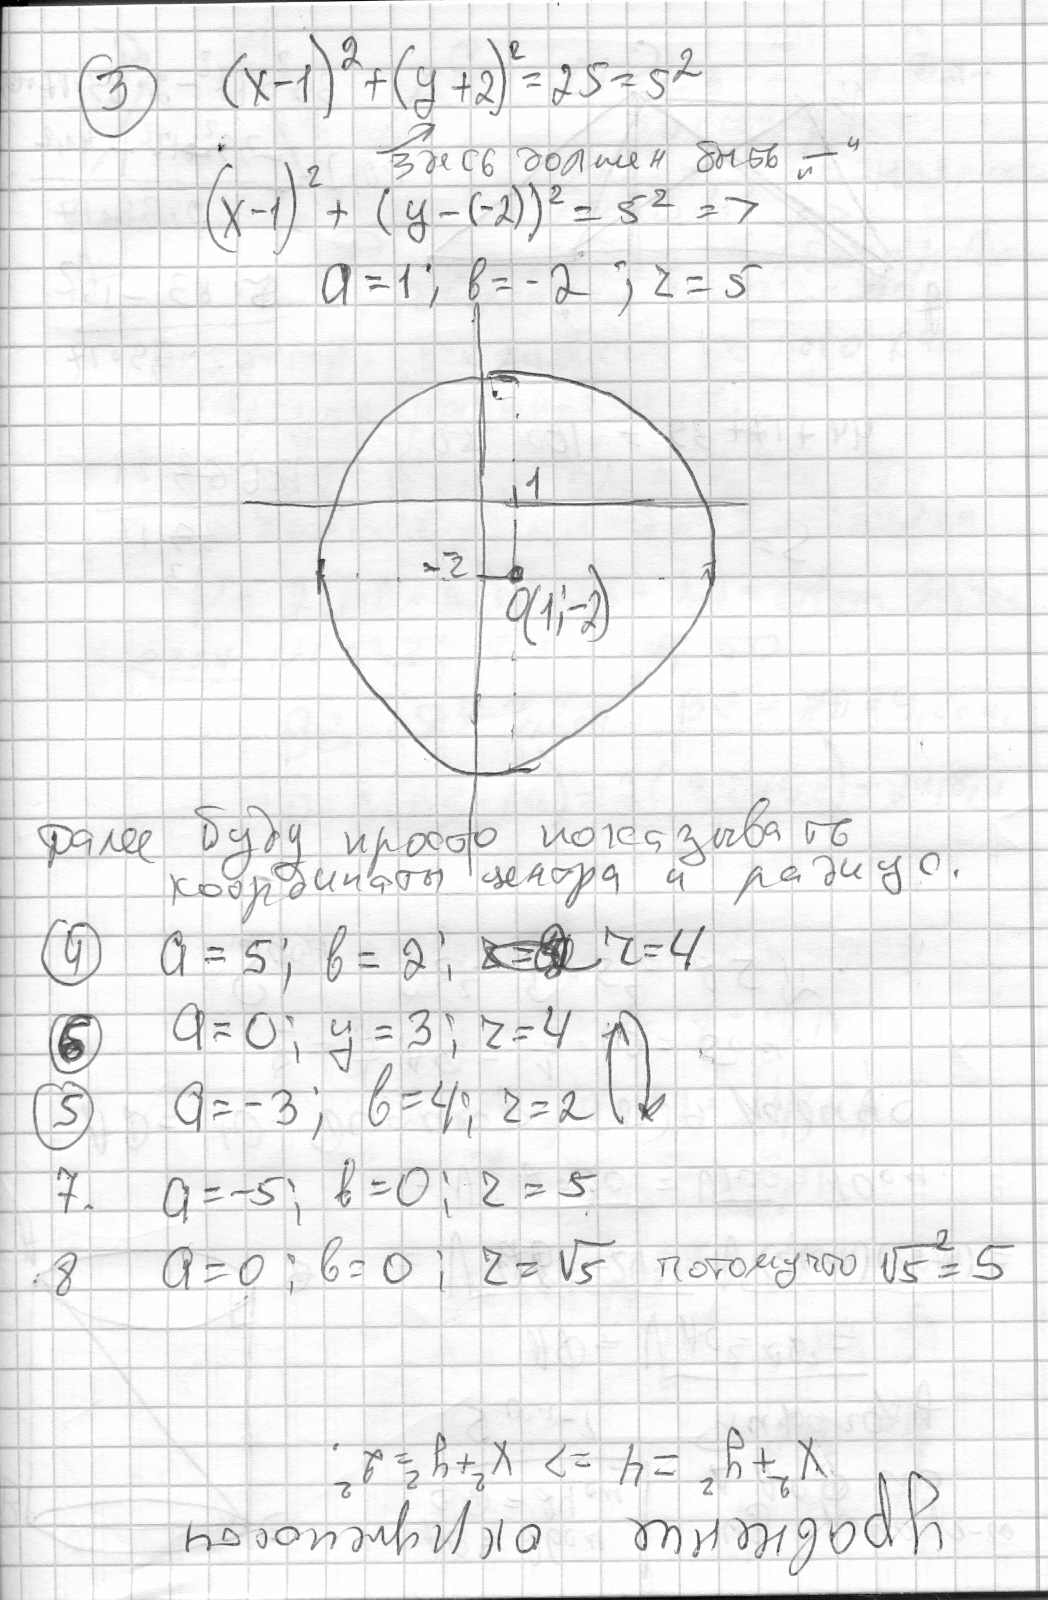 3 (x-1)² + (y+2)² = 25 = 5²
здесь должен быть „—“
(x-1)² + (y-(-2))² = 5² =>
a=1; b=-2; r=5
1
-2
O(1;-2)
Далее буду просто показывать
координаты центра и радиус.
4 a=5; b=2; r=4
6 a=0; y=3; r=4
5 a=-3; b=4; r=2
7. a=-5; b=0; r=5
8 a=0; b=0; r=√5 потому что √5²=5
Уравнение окружности
x²+y²=4 => x²+y²=2².